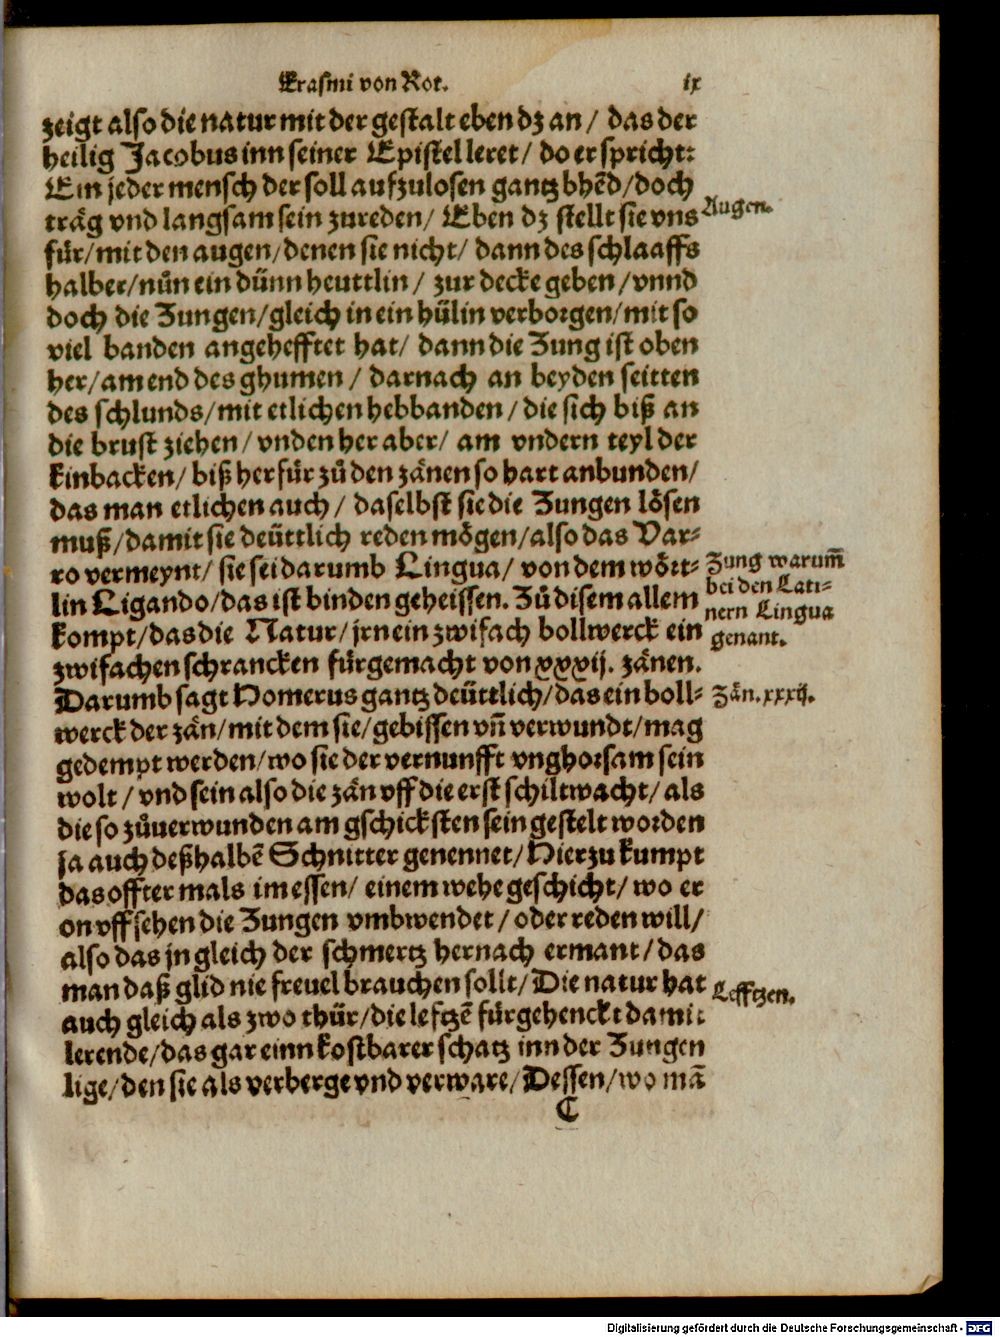 Erasmi von Rot. ix
zeigt also die natur mit der gestalt eben dz an / das der
heilig Jacobus inn seiner Epistel leret / do er spricht:
Ein jeder mensch der soll aufzulosen gantz bhẽd / doch
träg vnd langsam sein zureden / Eben dz stellt sie vns
Augen.
für / mit den augen / denen sie nicht / dann des schlaaffs
halber / nůn ein dünn heuttlin / zur decke geben / vnnd
doch die Zungen / gleich in ein hülin verborgen / mit so
viel banden angehefftet hat / dann die Zung ist oben
her / am end des ghumen / darnach an beyden seitten
des schlunds / mit etlichen hebbanden / die sich biß an
die brust ziehen / vnden her aber / am vndern teyl der
kinbacken / biß her für zů den zänen so hart anbunden /
das man etlichen auch / daselbst sie die Zungen lösen
muß / damit sie deüttlich reden mögen / also das Var-
ro vermeynt / sie sei darumb Lingua / von dem wört-
lin Ligando / das ist binden geheissen. Zů disem allem
kompt / das die Natur / jrn ein zwifach bollwerck ein
zwifachen schrancken fürgemacht von xxxij. zänen.
Zung warum̃
bei den Lati-
nern Lingua
genant.
Darumb sagt Homerus gantz deüttlich / das ein boll-
Zän. xxxij.
werck der zän / mit dem sie / gebissen vñ verwundt / mag
gedempt werden / wo sie der vernunfft vnghorsam sein
wolt / vnd sein also die zän vff die erst schiltwacht / als
die so zůuerwunden am gschicksten sein gestelt worden
ja auch deßhalbẽ Schnitter genennet / Hierzu kumpt
das offter mals im essen / einem wehe geschicht / wo er
on vffsehen die Zungen vmbwendet / oder reden will /
also das jn gleich der schmertz hernach ermant / das
man daß glid nie freuel brauchen sollt / Die natur hat
Leffzen.
auch gleich als zwo thür / die lefczẽ fürgehenckt damit
lerende / das gar einn kostbarer schatz inn der Zungen
lige / den sie als verberge vnd verware / Dessen / wo mã
C
Digitalisierung gefördert durch die Deutsche Forschungsgemeinschaft - DFG